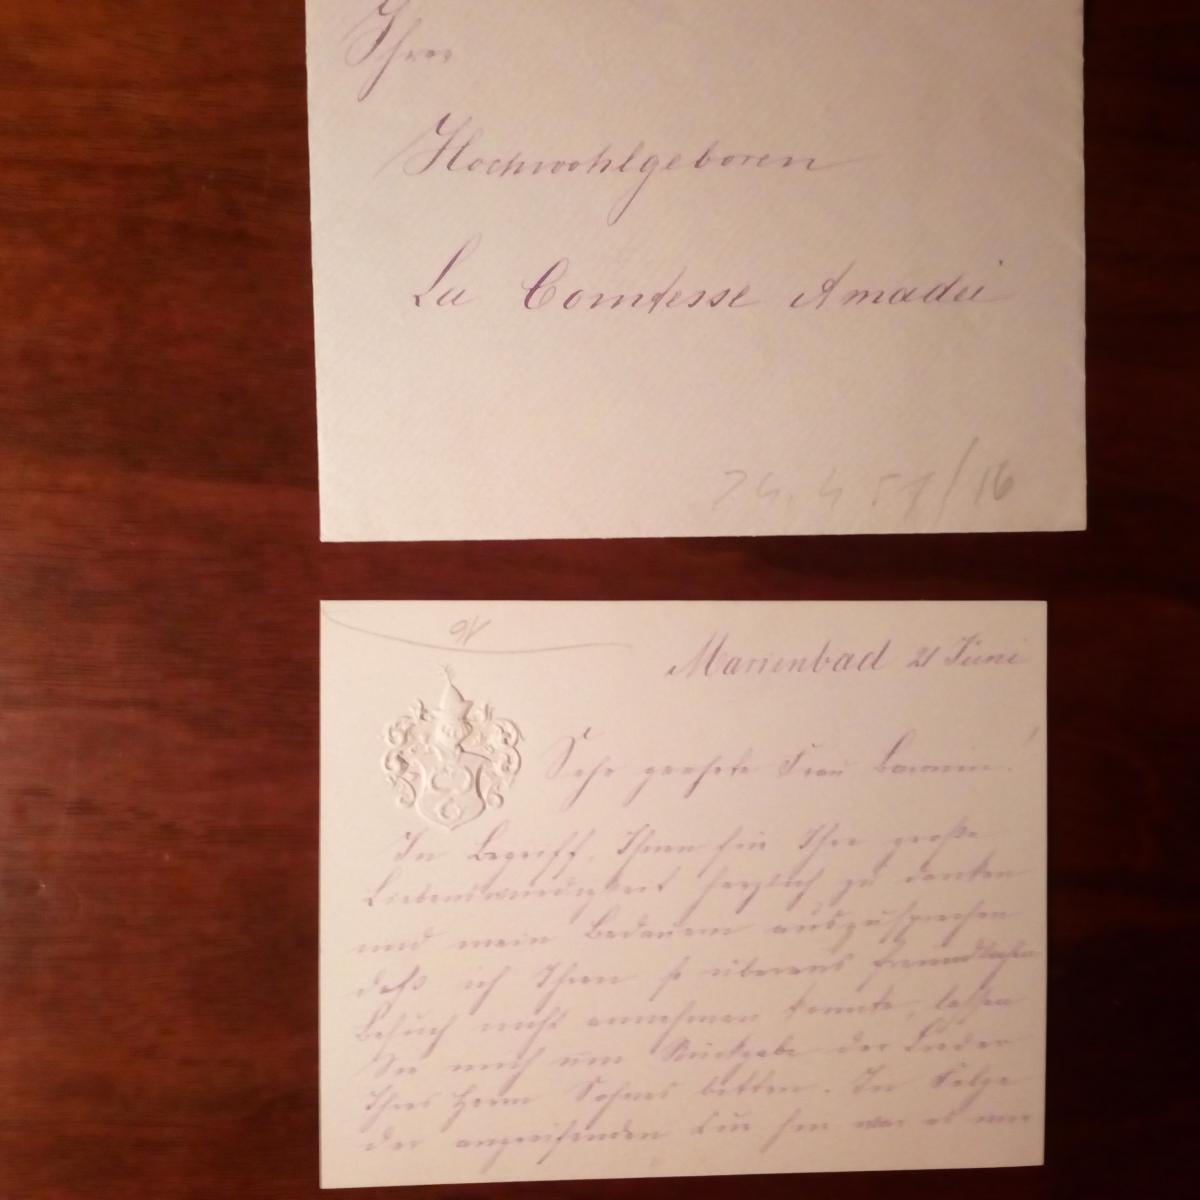 Ihrer
Hochwohlgeboren
La Comtesse Amadei
24.4 51/16
16
Marienbad 21 Juni
Sehr geehrte Frau Baronin!
Im Begriff, Ihnen für Ihre große
Liebenswürdigkeit herzlich zu danken
und mein Bedauern auszusprechen
daß ich Ihren so überaus freundlichen
Besuch nicht annehmen konnte, lassen
Sie mich um Rückgabe der Lieder
Ihres Herrn Sohnes bitten. In Folge
der angreifenden Kur hier war es mir